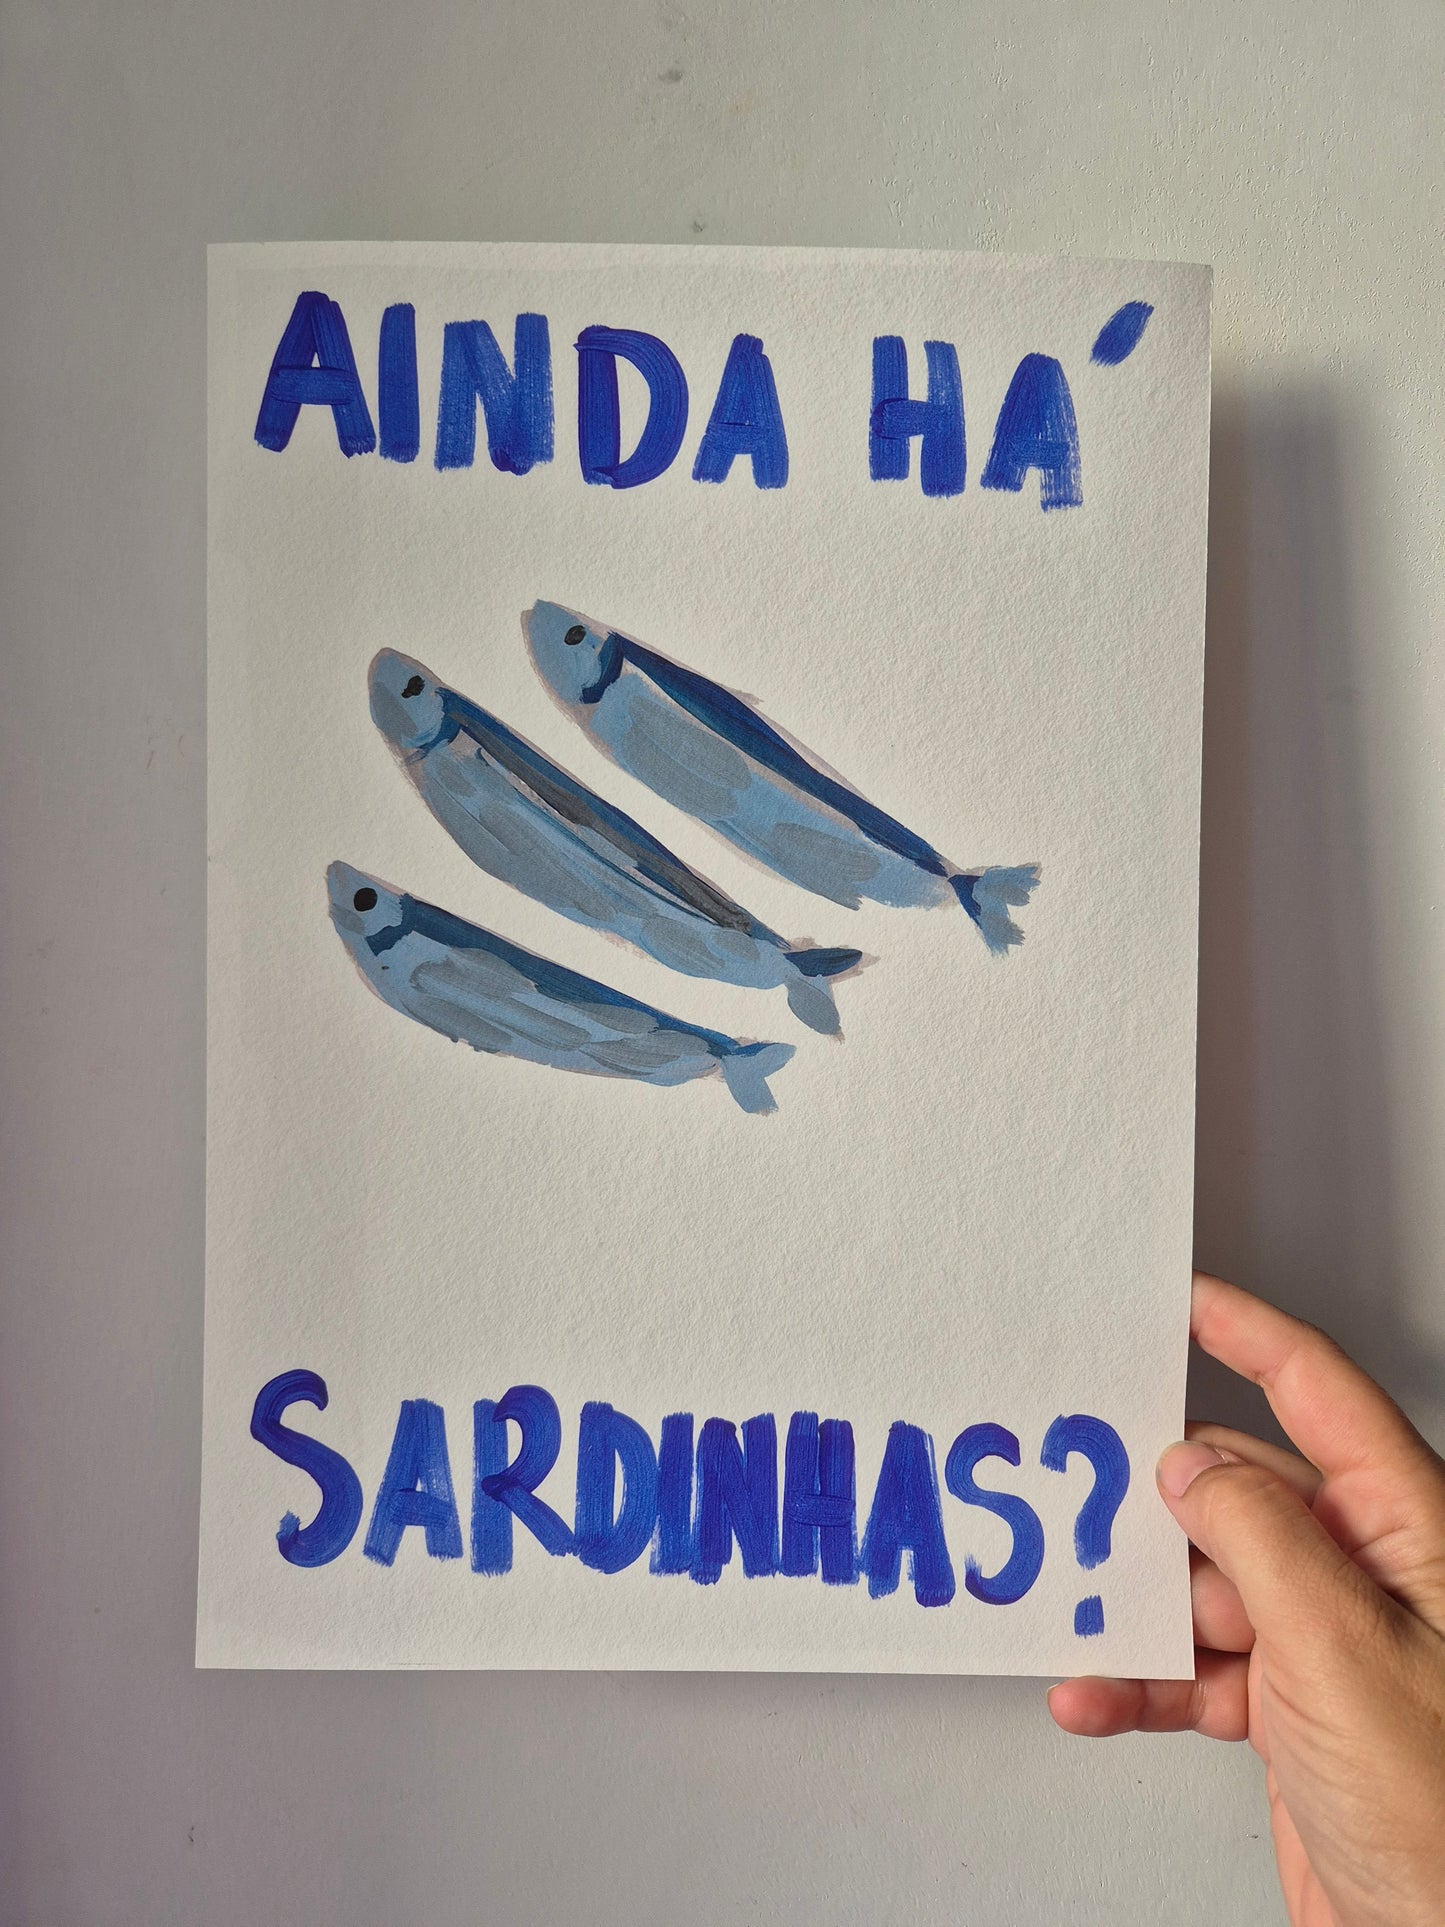 AINDA HÁ
SARDINHAS?